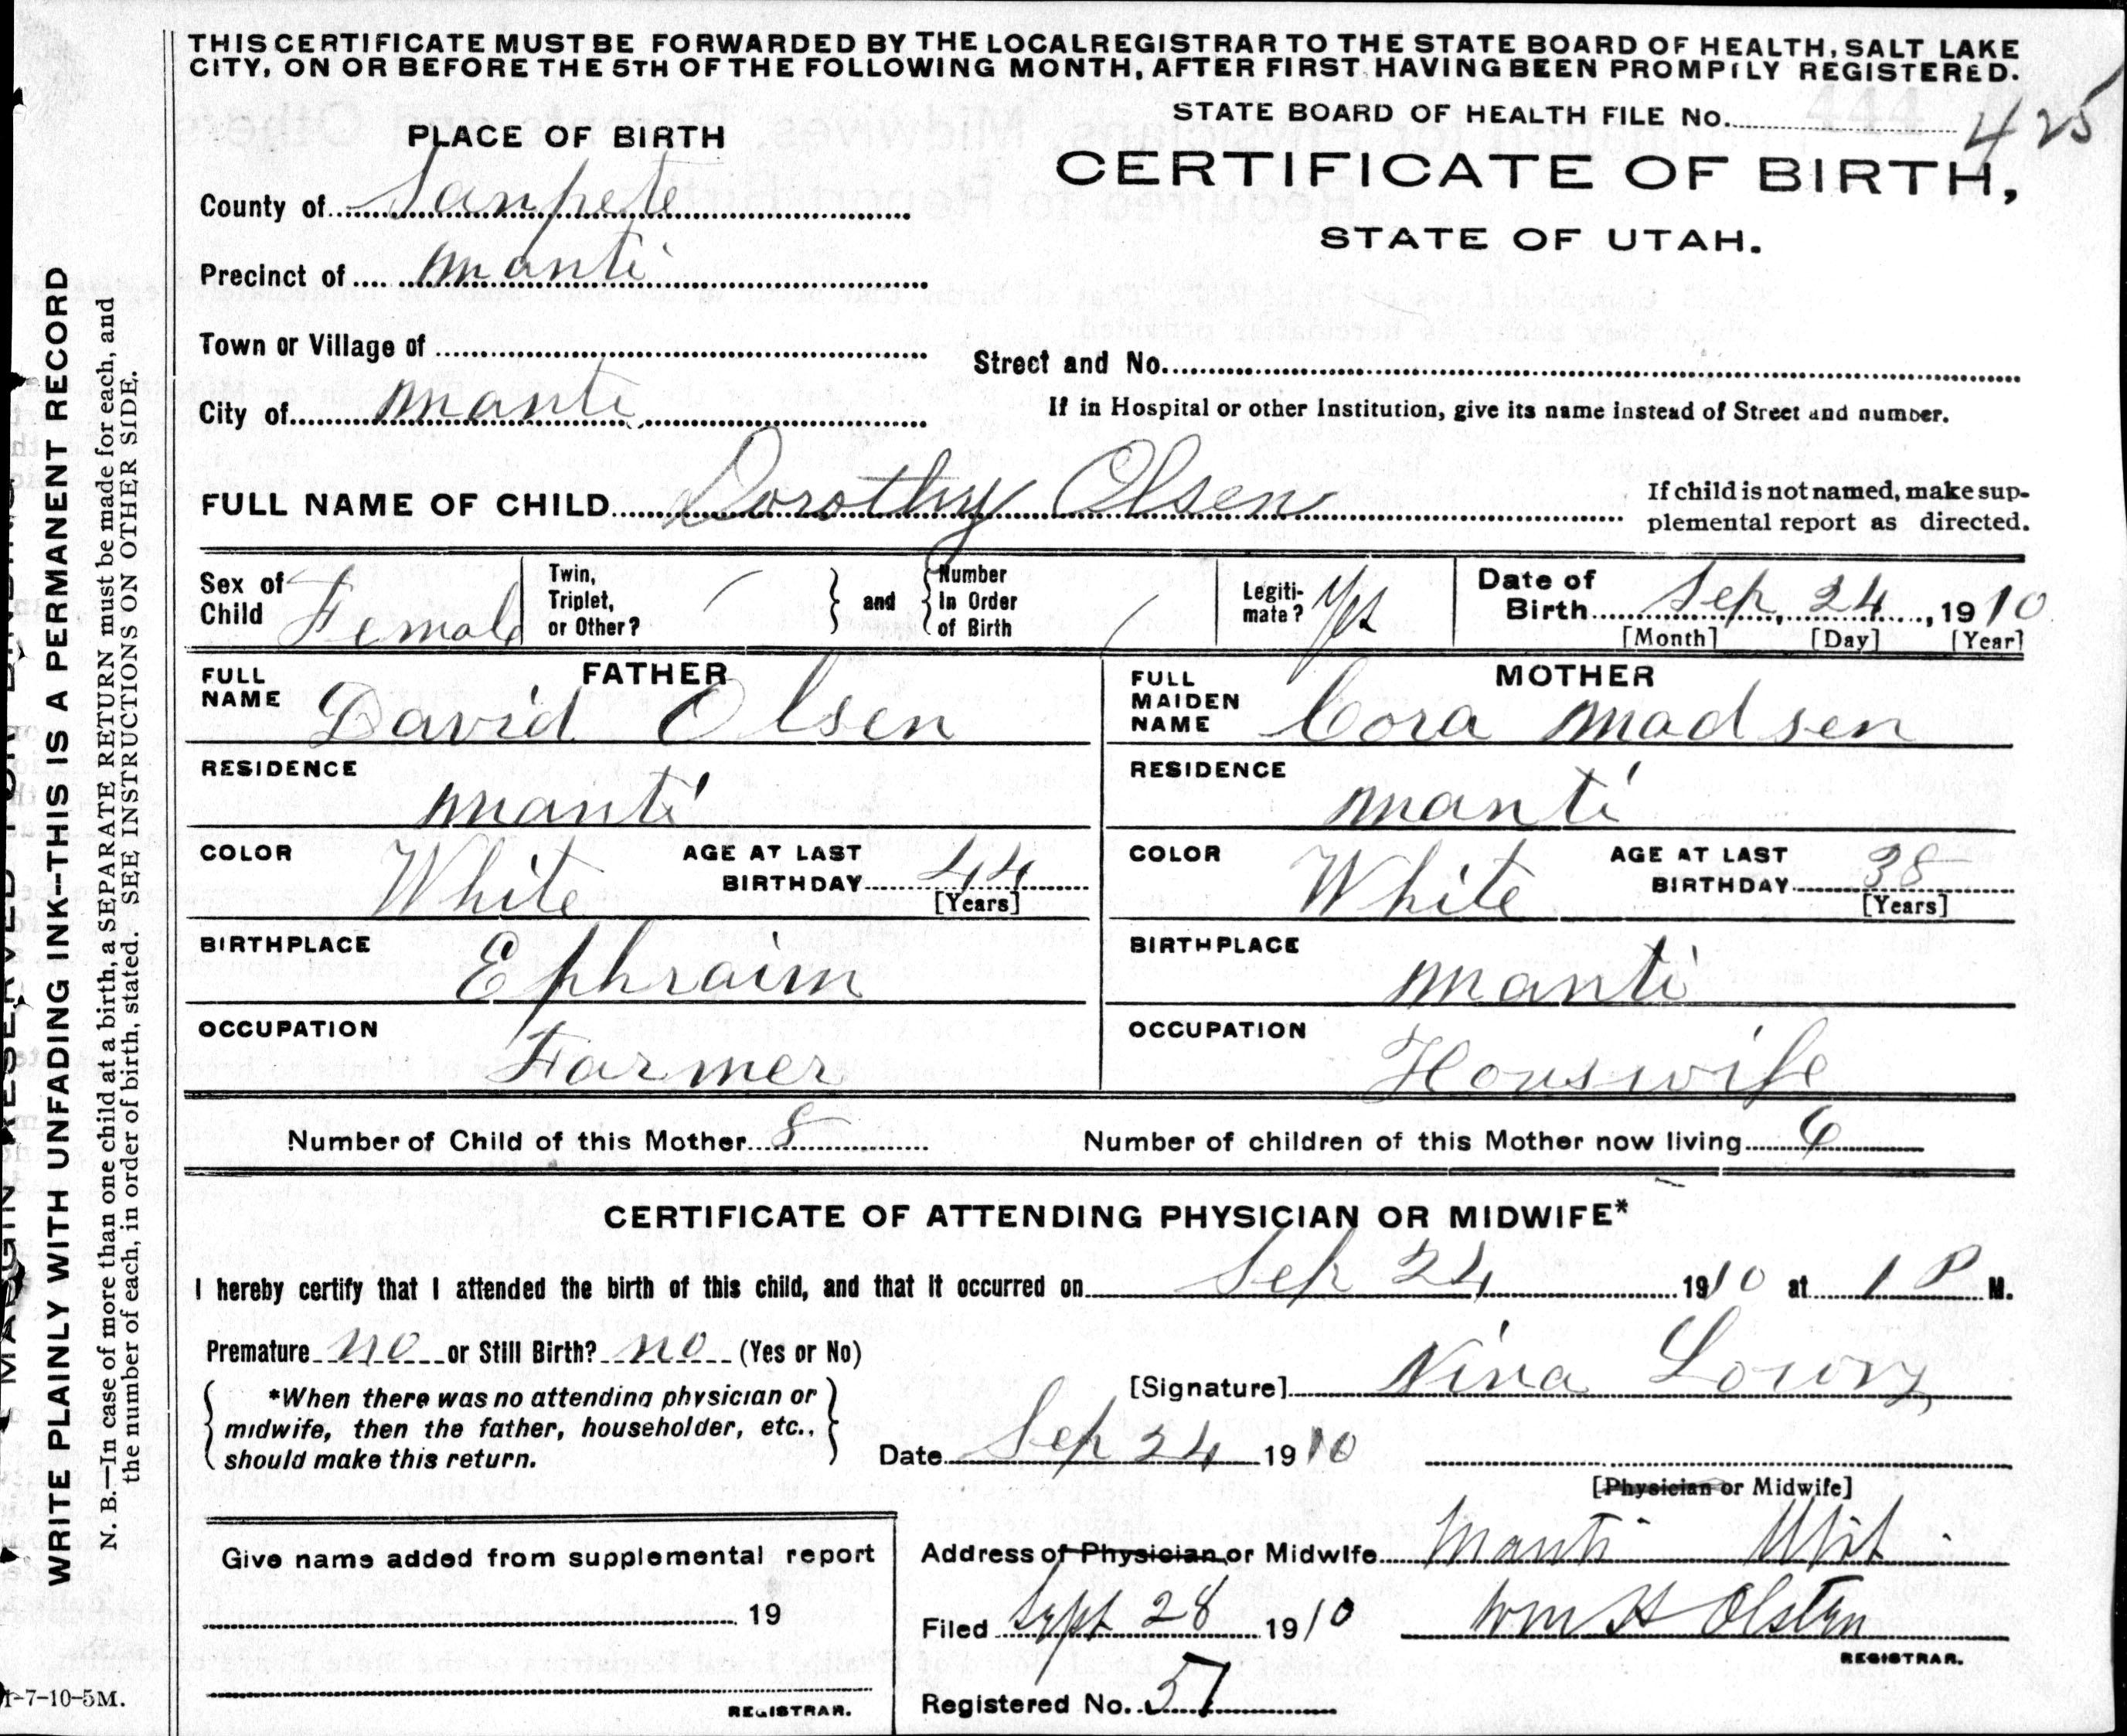 THIS CERTIFICATE MUST BE FORWARDED BY THE LOCAL REGISTRAR TO THE STATE BOARD OF HEALTH, SALT LAKE
CITY, ON OR BEFORE THE 5TH OF THE FOLLOWING MONTH, AFTER FIRST HAVING BEEN PROMPTLY REGISTERED.
STATE BOARD OF HEALTH FILE No. 425
PLACE OF BIRTH
CERTIFICATE OF BIRTH,
STATE OF UTAH.
County of Sanpete
Precinct of Manti
Town or Village of
Street and No.
City of Manti
If in Hospital or other Institution, give its name instead of Street and number.
FULL NAME OF CHILD Dorothy Olsen
If child is not named, make sup-
plemental report as directed.
Sex of Child Female
Twin, Triplet, or Other?
and
Number In Order of Birth
Legiti-mate? Yes
Date of Birth Sep, 24, 1910
[Month] [Day] [Year]
FATHER
FULL NAME David Olsen
MOTHER
FULL MAIDEN NAME Cora Madsen
RESIDENCE Manti
RESIDENCE Manti
COLOR White AGE AT LAST BIRTHDAY 44 [Years]
COLOR White AGE AT LAST BIRTHDAY 38 [Years]
BIRTHPLACE Ephraim
BIRTHPLACE Manti
OCCUPATION Farmer
OCCUPATION Houswife
Number of Child of this Mother 8 Number of children of this Mother now living 6
CERTIFICATE OF ATTENDING PHYSICIAN OR MIDWIFE*
I hereby certify that I attended the birth of this child, and that it occurred on Sep 24 1910 at 1 P M.
Premature no or Still Birth? no (Yes or No)
[Signature] Nina Lowry
*When there was no attending physician or
midwife, then the father, householder, etc.,
should make this return.
Date Sep 24 1910
[Physician or Midwife]
Give name added from supplemental report
19
REGISTRAR.
Address of Physician or Midwife Manti Utah
Filed Sept 28 1910 Wm H Olsten
REGISTRAR.
Registered No. 57
WRITE PLAINLY WITH UNFADING INK--THIS IS A PERMANENT RECORD
N. B.—In case of more than one child at a birth, a SEPARATE RETURN must be made for each, and
the number of each, in order of birth, stated. SEE INSTRUCTIONS ON OTHER SIDE.
-7-10-5M.